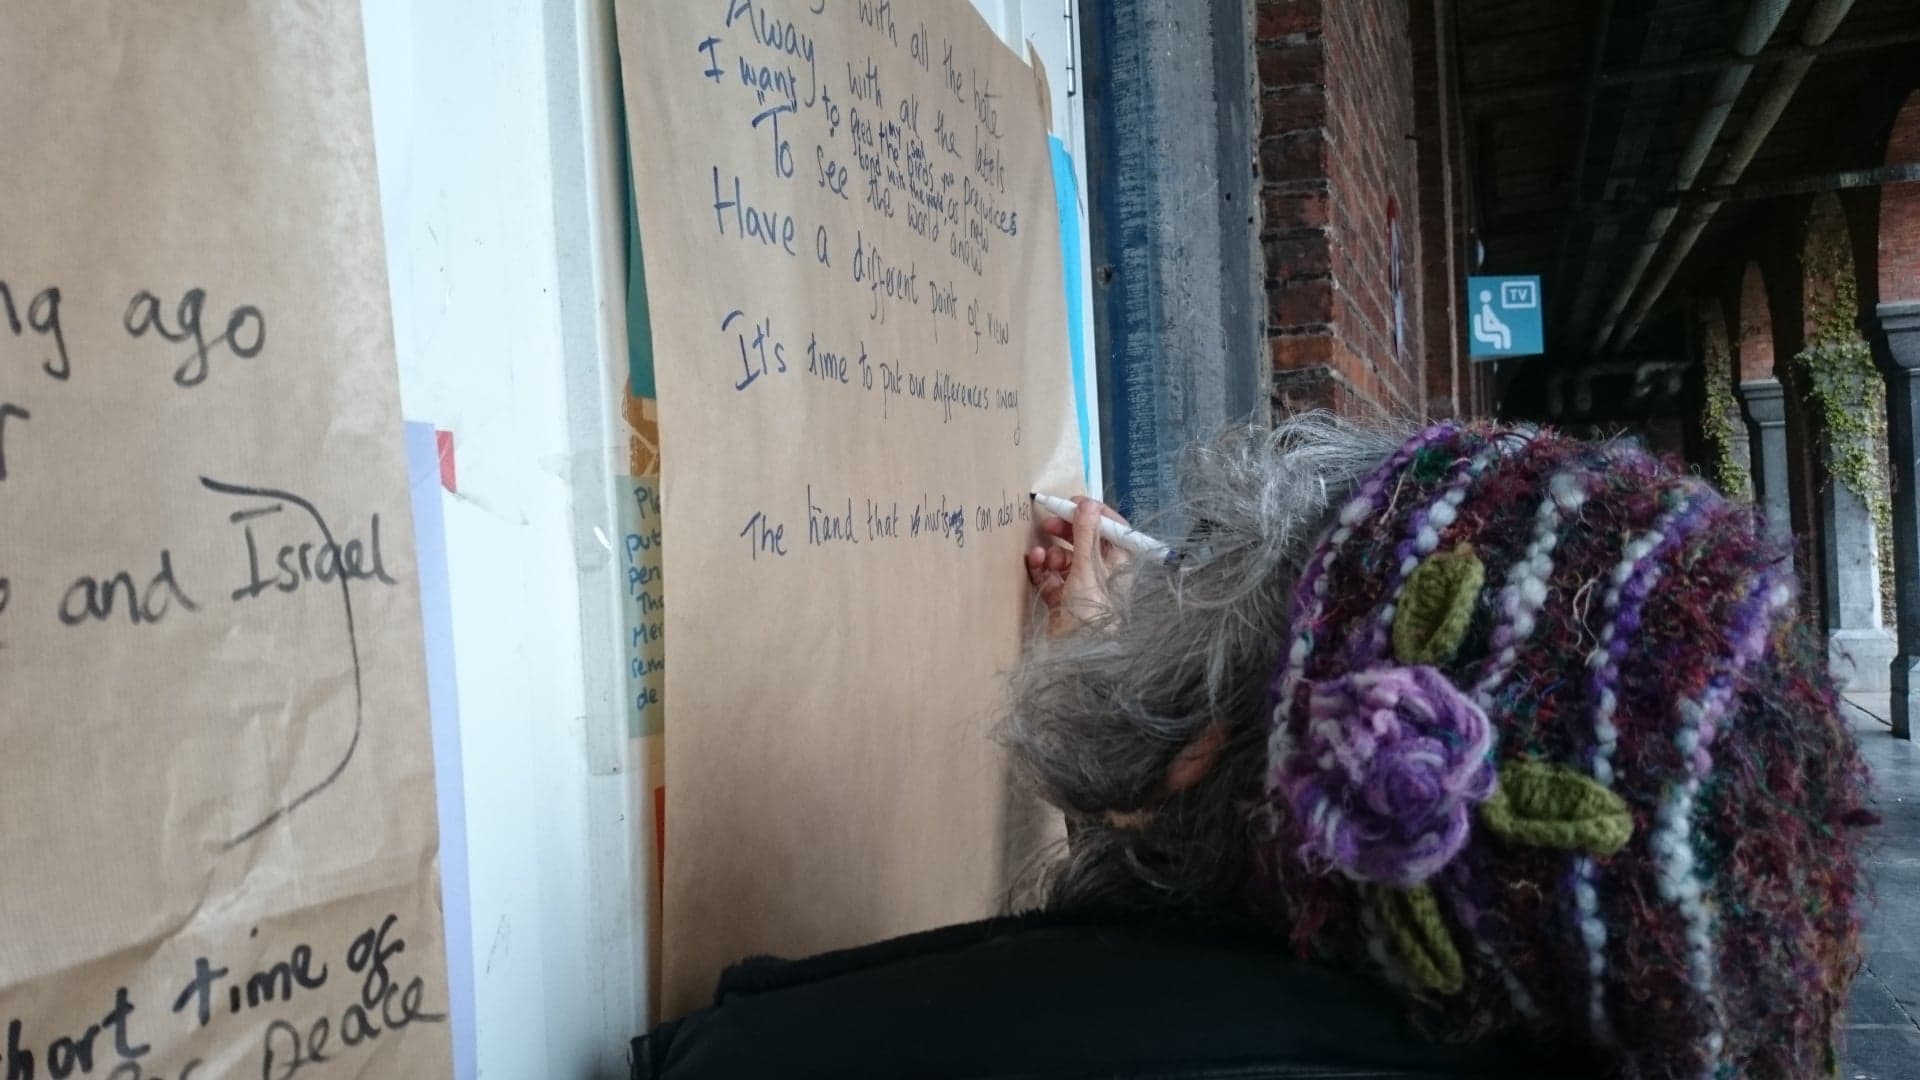 ng ago
r
and Israel
short time of
peace
with all the hate
Away with all the labels
I want to
my
feed the birds, you
bond with the world, as new
prejudices
To see the world anow
Have a different point of view
It's time to put our differences away
The hand that hurts can also he
Ple
put
pen
Tha
Mer
rem
de
TV